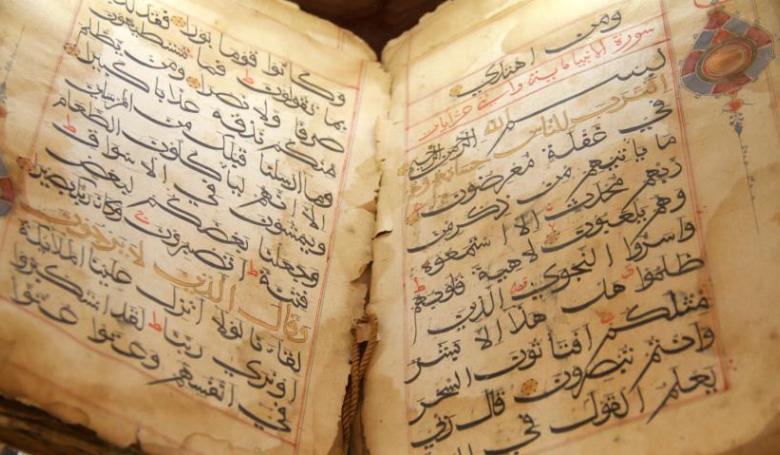 ومن اهتدى
سورة الانبيا مائة
بسم الله الرحمن الرحيم
اقترب للناس حسابهم وهم
في غفلة معرضون
ما ياتيهم من ذكر من
ربهم محدث الا استمعوه
وهم يلعبون لاهية قلوبهم
واسروا النجوى الذين
ظلموا هل هذا الا بشر
مثلكم افتاتون السحر
وانتم تبصرون قال ربي
يعلم القول في
وكانوا قوما بورا فقد
بما تقولون فما تستطيعون
صرفا ولا نصرا ومن يظلم
منكم نذقه عذابا كبيرا
وما ارسلنا قبلك من المرسلين
الا انهم لياكلون الطعام
ويمشون في الاسواق
وجعلنا بعضكم لبعض
فتنة اتصبرون وكان ربك بصيرا
وقال الذين لا يرجون
لقانا لولا انزل علينا الملائكة
او نرى ربنا لقد استكبروا
في انفسهم وعتوا عتوا